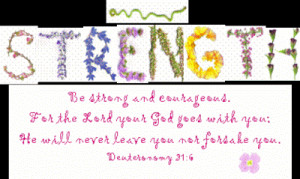 STRENGTH
Be strong and courageous.
For the Lord your God goes with you;
He will never leave you nor forsake you.
Deuteronomy 31:6